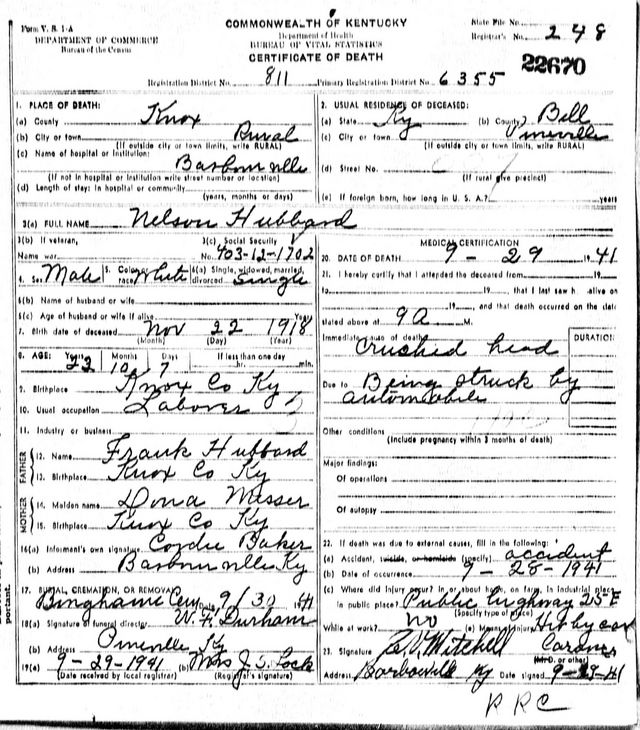 Form V. S. 1-A
DEPARTMENT OF COMMERCE
Bureau of the Census
COMMONWEALTH OF KENTUCKY
Department of Health
BUREAU OF VITAL STATISTICS
CERTIFICATE OF DEATH
State File No.
Registrar's No. 248
22670
Registration District No. 811 Primary Registration District No. 6355
1. PLACE OF DEATH:
(a) County Knox
(b) City or town Rural
(If outside city or town limits, write RURAL)
(c) Name of hospital or institution:
Barbourville
(If not in hospital or institution write street number or location)
(d) Length of stay: In hospital or community
(years, months or days)
2. USUAL RESIDENCE OF DECEASED:
(a) State Ky (b) County Bell
(c) City or town Pineville
(If outside city or town limits, write RURAL)
(d) Street No.
(If rural give precinct)
(e) If foreign born, how long in U. S. A.? years
3(a) FULL NAME Nelson Hubbard
3(b) If veteran,
Name war
3(c) Social Security
No. 403-12-1702
4. Sex Male 5. Color or race White 6(a) Single, widowed, married, divorced Single
6(b) Name of husband or wife
6(c) Age of husband or wife if alive Years
7. Birth date of deceased Nov 22 1918
(Month) (Day) (Year)
8. AGE: Years 22 Months 10 Days 7 If less than one day
hr. min.
9. Birthplace Knox Co Ky
10. Usual occupation Laborer
11. Industry or business
FATHER
12. Name Frank Hubbard
13. Birthplace Knox Co Ky
MOTHER
14. Maiden name Dona Messer
15. Birthplace Knox Co Ky
16(a) Informant's own signature Cordie Baker
(b) Address Barbourville Ky
17. BURIAL, CREMATION, OR REMOVAL
Binghami Cem Date 9/30 1941
18(a) Signature of funeral director W. F. Durham
(b) Address Pineville Ky
19(a) 9-29-1941 (b) Mrs J. S. Lock
(Date received by local registrar) (Registrar's signature)
MEDICAL CERTIFICATION
20. DATE OF DEATH 9-29 1941
21. I hereby certify that I attended the deceased from 19
to 19, that I last saw h alive on
19, and that death occurred on the date
stated above at 9A M.
Immediate cause of death DURATION
Crushed head
Due to Being struck by
automobile
Other conditions
(Include pregnancy within 3 months of death)
Major findings:
Of operations
Of autopsy
22. If death was due to external causes, fill in the following:
(a) Accident, suicide, or homicide (specify) accident
(b) Date of occurrence 9-28-1941
(c) Where did injury occur? In or about home, on farm, in industrial place,
in public place? Public highway 25E
(Specify type of place)
While at work? no (e) Means of injury Hit by car
23. Signature B. V. Mitchell Coroner
(M. D. or other)
Address Barbourville Ky Date signed 9-29-41
R R C